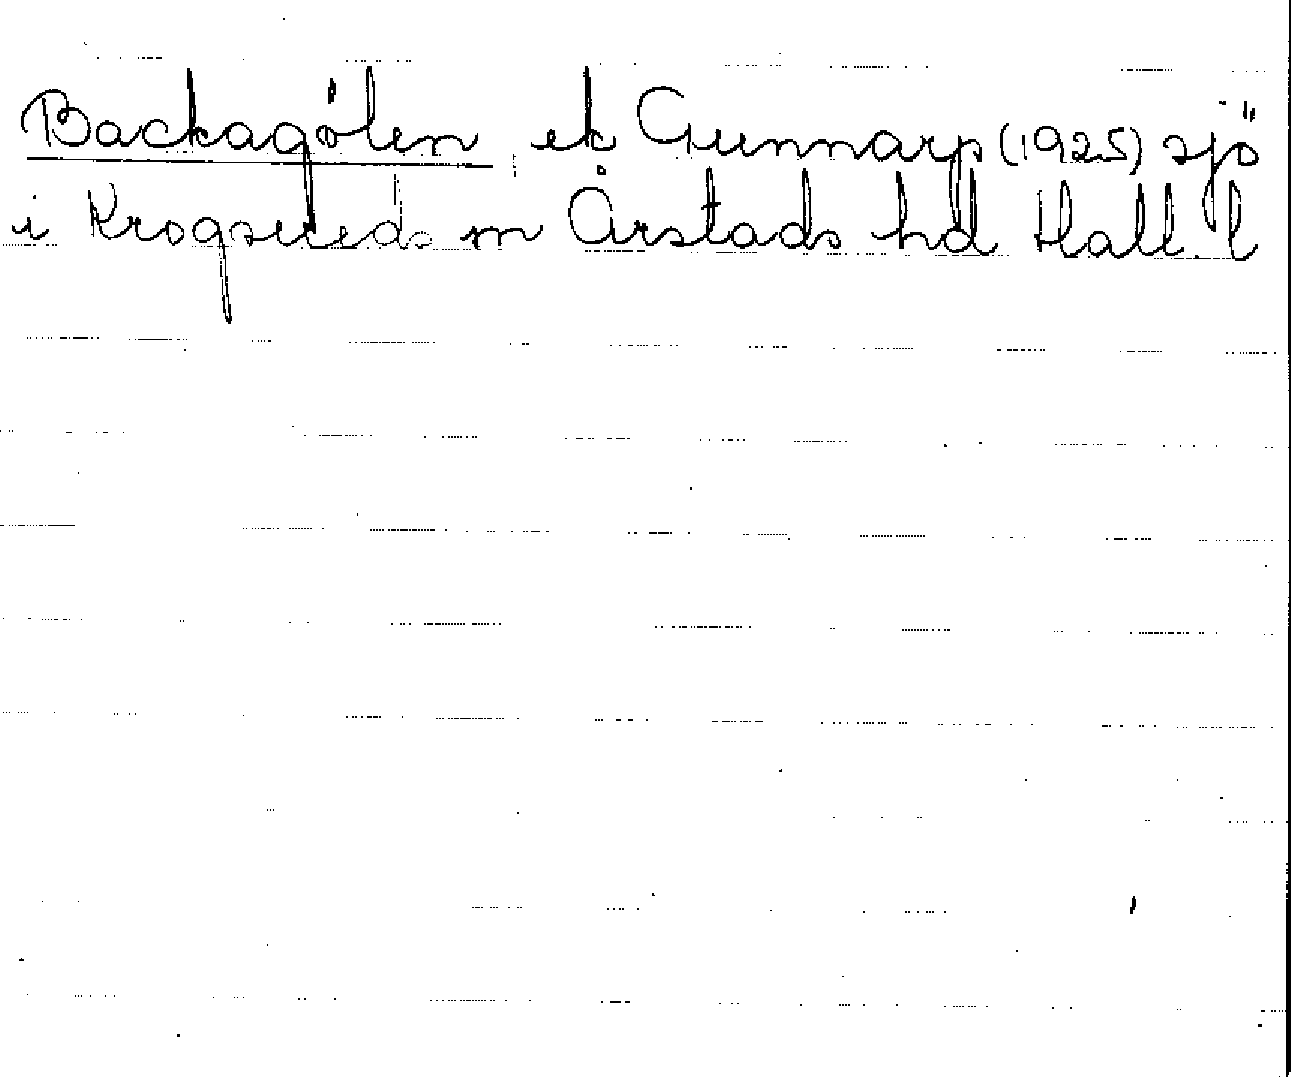 Backagölen ek Gunnarp (1925) sjö
i Krogsereds sn Årstads hd Hall. l